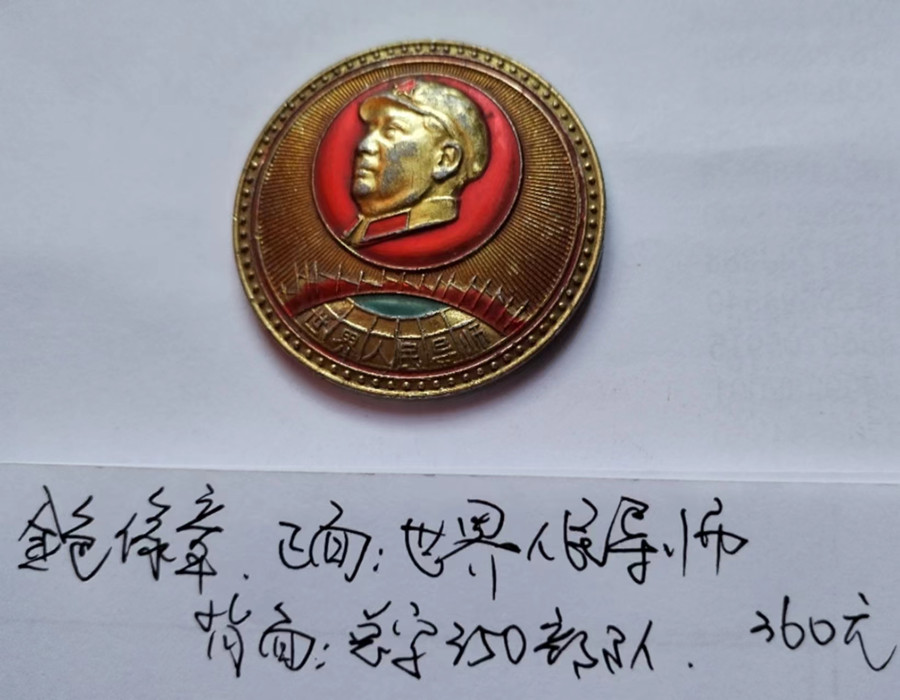 世界人民导师
金色像章. 正面:世界人民导师
背面:总字350部队. 360元